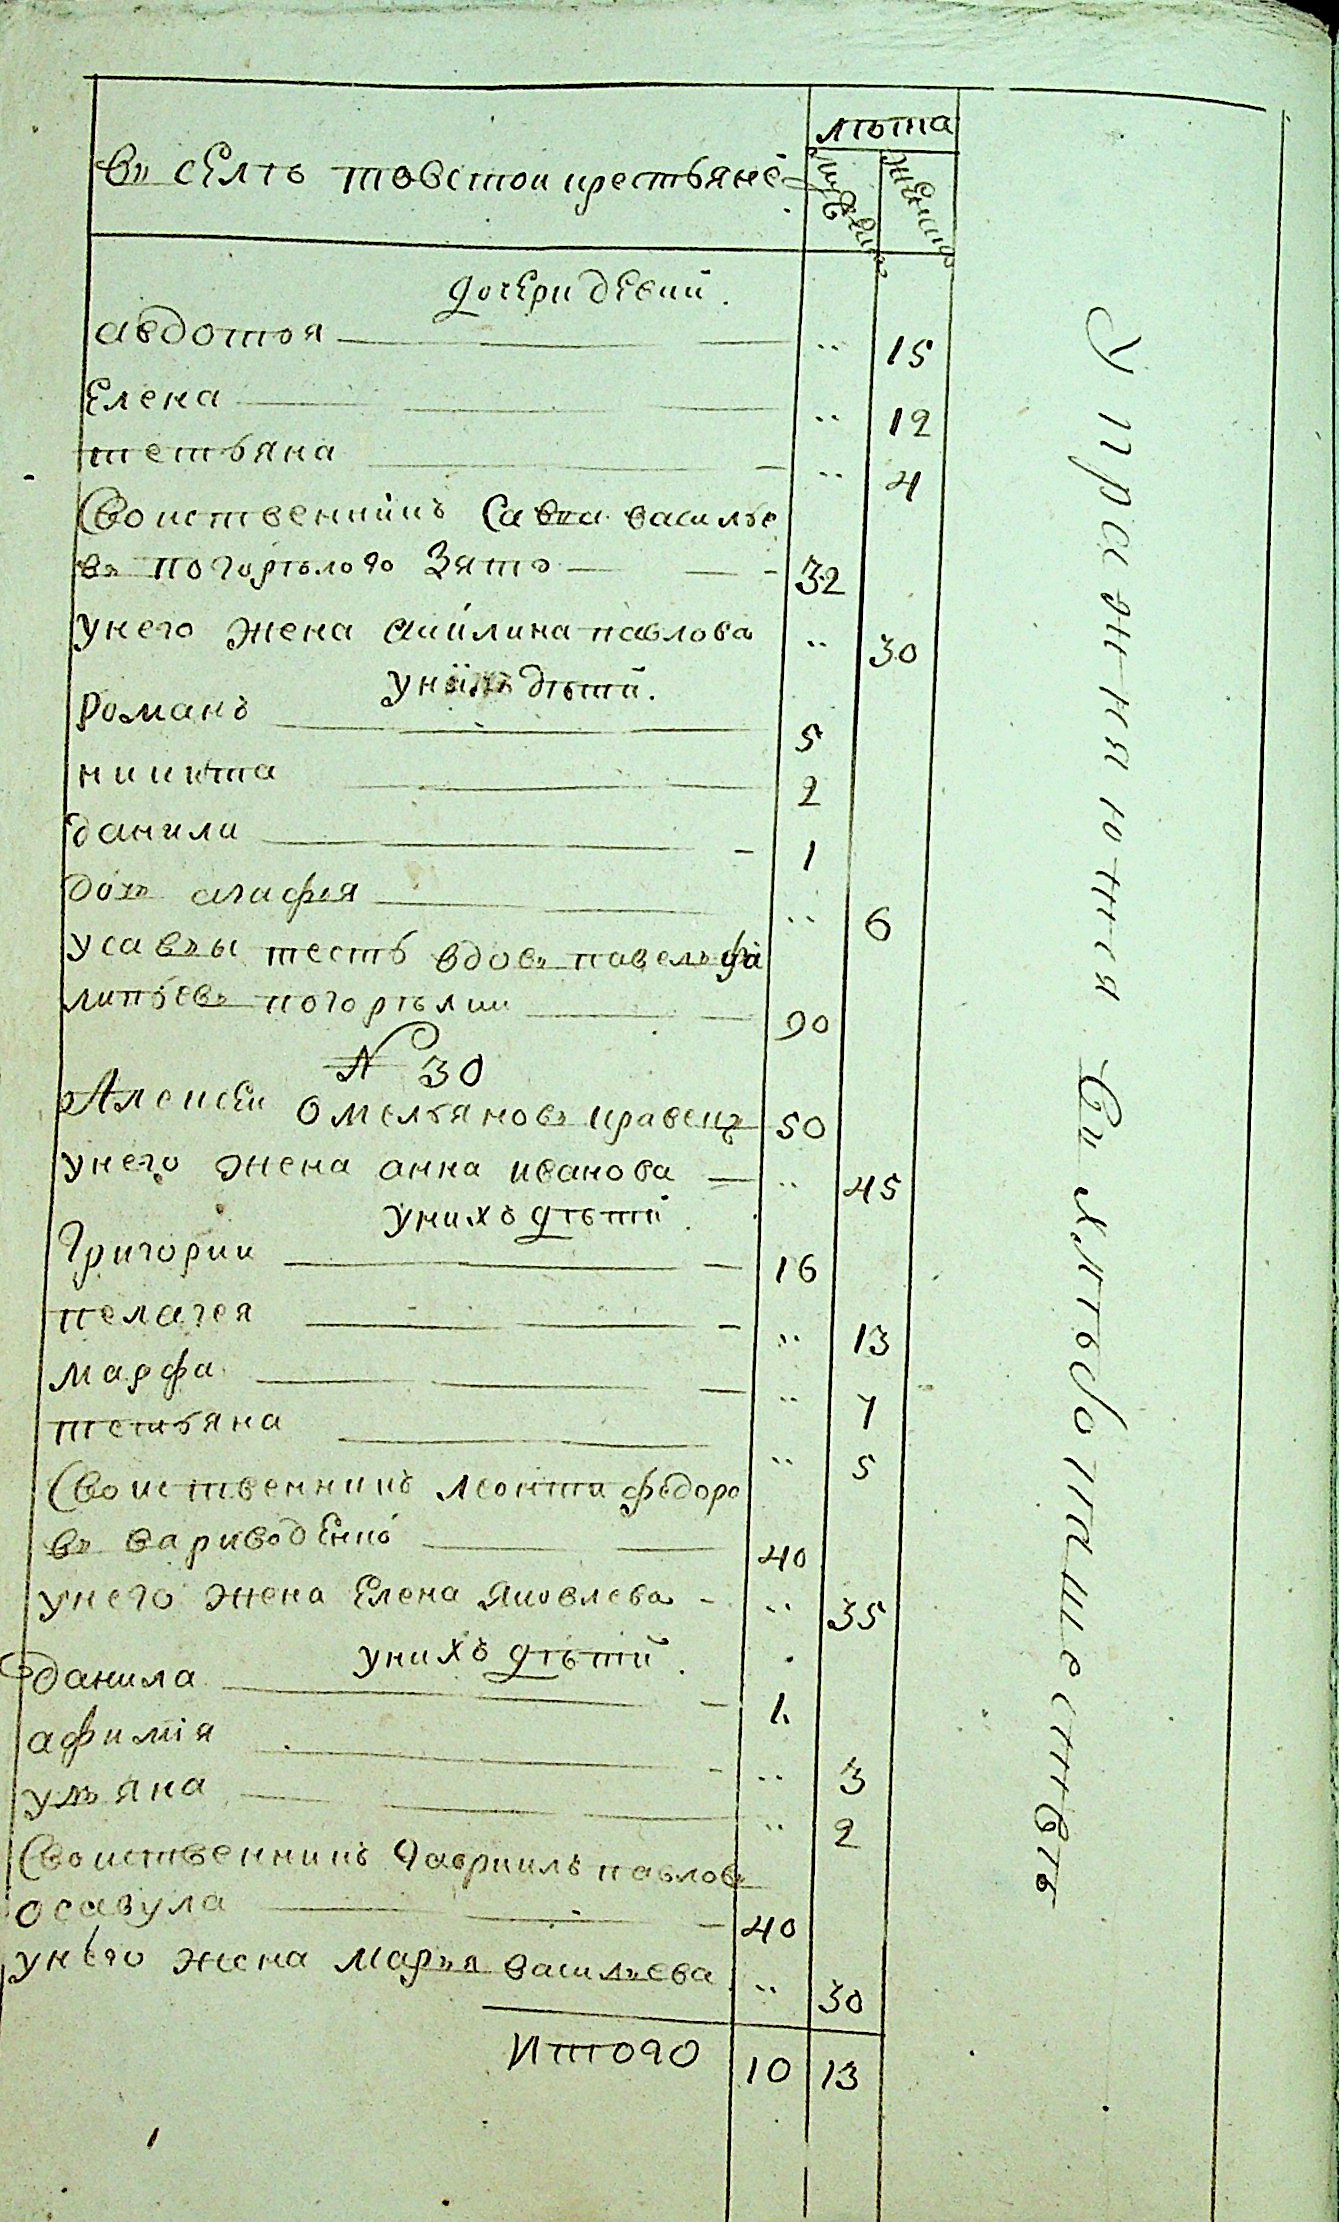 лѣта
въ селѣ товстои крестьяне
мужеска
женска
дочери девки.
авдотья .. 15
Елена .. 12
тетьяна .. 4
Своиственникъ Савка василье
въ погорѣлого зять 32
унего жена акилина павлова .. 30
унихъ дѣти.
романъ 5
никита 2
данила 1
дочь агафья .. 6
усавъы тесть вдовъ павелъ фи
липьевъ погорѣлии 90
N 30
Алексеи омельяновъ кравецъ 50
унего жена анна иванова .. 45
унихъ дѣти.
Григории 16
пелагея .. 13
марфа .. 7
тетьяна .. 5
Своиственникъ леонти федоро
въ вариводенко 40
унего жена Елена яковлева .. 35
унихъ дѣти.
данила 1.
афимія .. 3
ульяна .. 2
Своиственникъ Гавриилъ павловъ
осавула 40
унего жена марья васильева .. 30
Итого 10 13
Упражняютися въ хлѣбопашествѣ